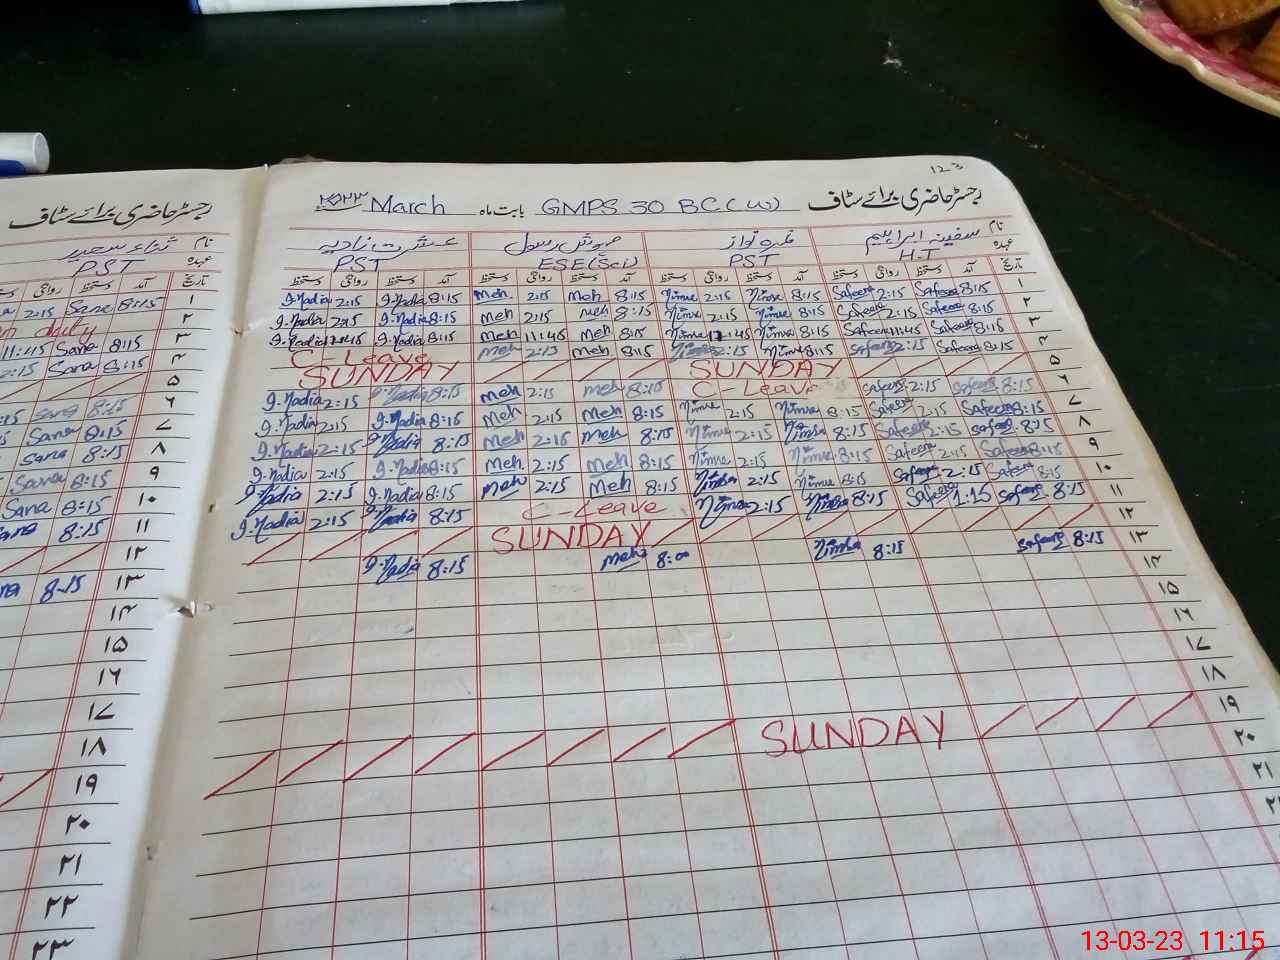 12 3
رجسٹر حاضری برائے سٹاف
رجسٹر حاضری برائے سٹاف GMPS 30 BC(W) بابت ماہ March ۲۰۲۳
نام سفینہ ابراہیم نمرہ نواز مہوش رسول عشرت نادیہ
عہدہ H.T PST ESE(Sci) PST
تاریخ آمد دستخط روانگی دستخط آمد دستخط روانگی دستخط آمد دستخط روانگی دستخط آمد دستخط روانگی دستخط
I.Nadia 2:15 I.Nadia 8:15 Meh 2:15 Meh 8:15 Nimra 2:15 Nimra 8:15 Safeena 2:15 Safeena 8:15 ۱
I.Nadia 2:15 I.Nadia 8:15 Meh 2:15 Meh 8:15 Nimra 2:15 Nimra 8:15 Safeena 2:15 Safeena 8:15 ۲
I.Nadia 11:45 I.Nadia 8:15 Meh 11:45 Meh 8:15 Nimra 11:45 Nimra 8:15 Safeena 11:45 Safeena 8:15 ۳
C-Leave Meh 2:15 Meh 8:15 Nimra 2:15 Nimra 8:15 Safeena 2:15 Safeena 8:15 ۴
SUNDAY SUNDAY ۵
I.Nadia 2:15 I.Nadia 8:15 Meh 2:15 Meh 8:15 C-Leave Safeena 2:15 Safeena 8:15 ۶
I.Nadia 2:15 I.Nadia 8:15 Meh 2:15 Meh 8:15 Nimra 2:15 Nimra 8:15 Safeena 2:15 Safeena 8:15 ۷
I.Nadia 2:15 I.Nadia 8:15 Meh 2:15 Meh 8:15 Nimra 2:15 Nimra 8:15 Safeena 2:15 Safeena 8:15 ۸
I.Nadia 2:15 I.Nadia 8:15 Meh 2:15 Meh 8:15 Nimra 2:15 Nimra 8:15 Safeena 2:15 Safeena 8:15 ۹
I.Nadia 2:15 I.Nadia 8:15 Meh 2:15 Meh 8:15 Nimra 2:15 Nimra 8:15 Safeena 2:15 Safeena 8:15 ۱۰
I.Nadia 2:15 I.Nadia 8:15 C-Leave Nimra 2:15 Nimra 8:15 Safeena 1:15 Safeena 8:15 ۱۱
SUNDAY ۱۲
I.Nadia 8:15 Meh 8:00 Nimra 8:15 Safeena 8:15 ۱۳
۱۴
۱۵
۱۶
۱۷
۱۸
SUNDAY ۱۹
۲۰
۲۱
نام ثناء سعید
عہدہ PST
تاریخ آمد دستخط روانگی
2:15 Sana 8:15 ۱
daily ۲
11:45 Sana 8:15 ۳
2:15 Sana 8:15 ۴
۵
Sana 8:15 ۶
Sana 8:15 ۷
Sana 8:15 ۸
Sana 8:15 ۹
Sana 8:15 ۱۰
8:15 ۱۱
۱۲
8:15 ۱۳
۱۴
۱۵
۱۶
۱۷
۱۸
۱۹
۲۰
۲۱
۲۲
۲۳
13-03-23 11:15